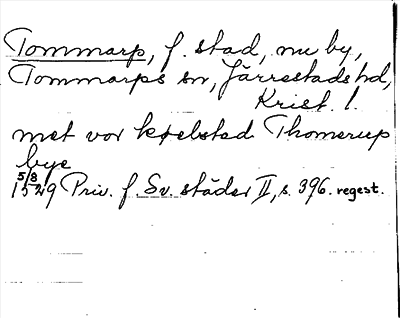 Tommarp, f. stad, nu by,
Tommarps sn, Järrestads hd,
Krist. l.
met vor køelstad Thomerup
bye
5/8 1529 Priv. f. Sv. städer II, s. 396. regest.